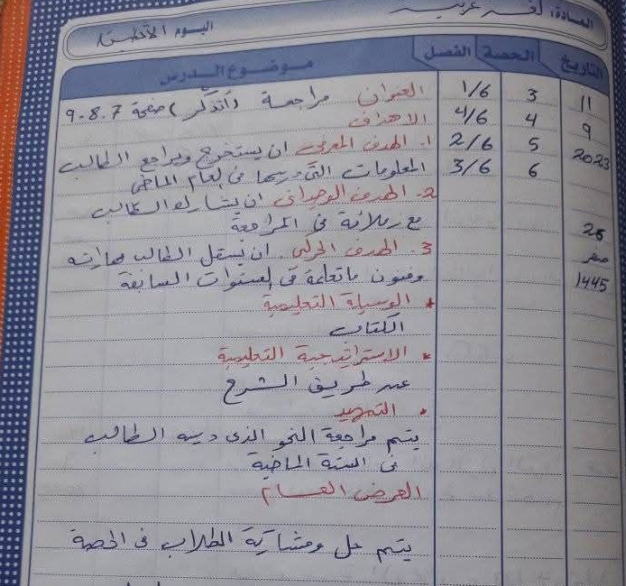 المادة: لغة عربية
اليوم الاثنين
التاريخ الحصة الفصل موضوع الدرس
11 3 1/6 العنوان مراجعة (أتذكر) صفحة 7 . 8 - 9
9 4 4/6 الاهداف
2023 5 2/6 1. الهدف المعرفي ان يستخرج ويراجع الطالب
6 3/6 المعلومات التي درسها في العام الماضي
2. الهدف الوجداني ان يشارك الطالب
26 مع زملائه في المراجعة
صفر 3. الهدف الحركي . ان يستغل الطالب مهاراته
1445 وفنون ما تعلمه في السنوات السابقة
* الوسيلة التعليمية
الكتاب
* الاستراتيجية التعليمية
عن طريق الشرح
* التمهيد
يتم مراجعة النحو الذى درسه الطالب
فى السنة الماضية
العرض العام
يتم حل ومشاركة الطلاب فى الحصة